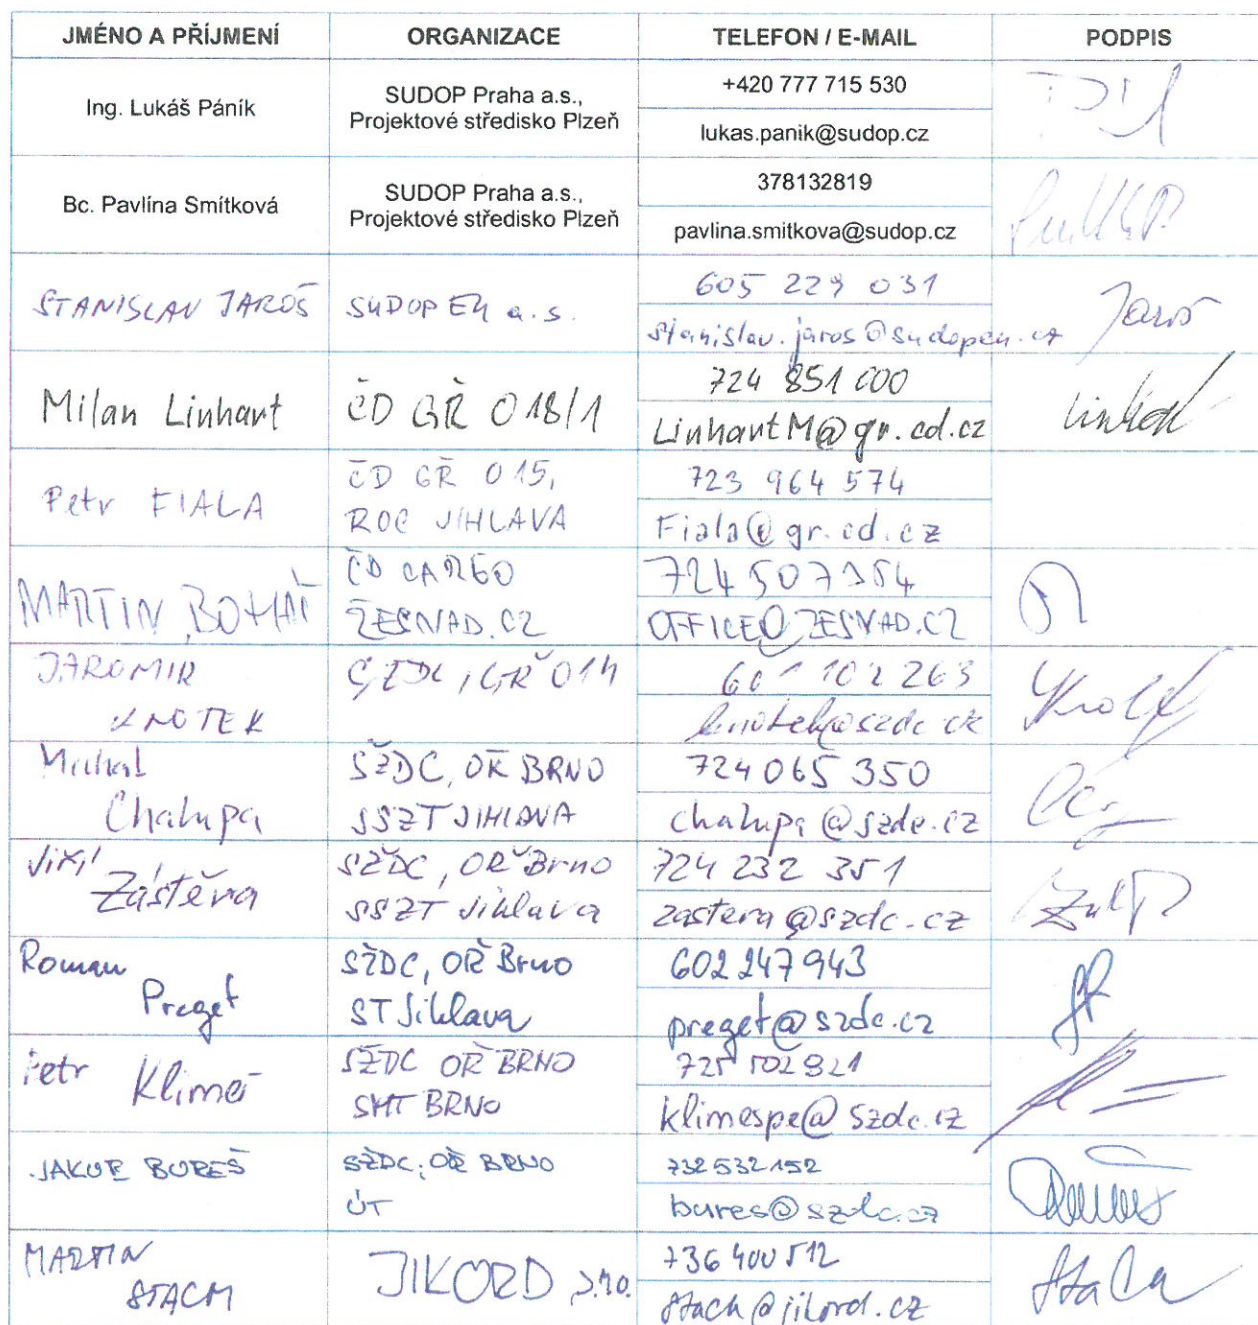 JMÉNO A PŘÍJMENÍ ORGANIZACE TELEFON / E-MAIL PODPIS
Ing. Lukáš Páník
SUDOP Praha a.s.,
Projektové středisko Plzeň
+420 777 715 530
lukas.panik@sudop.cz
Bc. Pavlína Smítková
SUDOP Praha a.s.,
Projektové středisko Plzeň
378132819
pavlina.smitkova@sudop.cz
STANISLAV JAROŠ
SUDOP EU a.s.
605 229 031
stanislav.jaros@sudopeu.cz
Jaroš
Milan Linhart
ČD GŘ O 18/1
724 851 000
LinhartM@gr.cd.cz
Linhart
Petr FIALA
ČD GŘ O 15,
ROC JIHLAVA
723 964 574
Fiala@gr.cd.cz
MARTIN BOHÁČ
ČD CARGO
ŽESNAD.CZ
724 507 354
OFFICE@ZESNAD.CZ
JAROMIR
KNOTEK
SŽDC, GŘ O14
102 263
knotek@szdc.cz
Michal
Chalupa
SŽDC, OŘ BRNO
SSZT JIHLAVA
724 065 350
chalupa@szdc.cz
Jiří
Zástěra
SŽDC, OŘ Brno
SSZT Jihlava
724 232 351
zastera@szdc.cz
Roman
Preget
SŽDC, OŘ Brno
ST Jihlava
602 247 943
preget@szdc.cz
Petr Klimeš
SŽDC OŘ BRNO
SMT BRNO
725 502 921
klimespe@szdc.cz
JAKUB BUREŠ
SŽDC, OŘ BRNO
ÚT
732 532 152
bures@szdc.cz
MARTIN
STACH
JIKORD s.r.o.
736 400 512
stach@jikord.cz
Stach